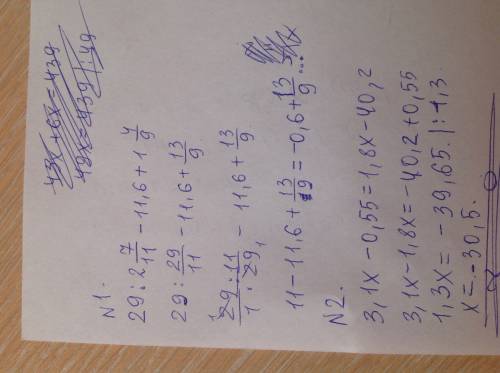 43x - 6x = 439
49x = 439 | : 49
N1.
29 : 2 7/11 - 11,6 + 1 4/9
29 : 29/11 - 11,6 + 13/9
29 · 11 / 1 · 29 - 11,6 + 13/9
11 - 11,6 + 13/9 = -0,6 + 13/9 ...
N2.
3,1x - 0,55 = 1,8x - 40,2
3,1x - 1,8x = -40,2 + 0,55
1,3x = -39,65. | : 1,3.
x = -30,5.